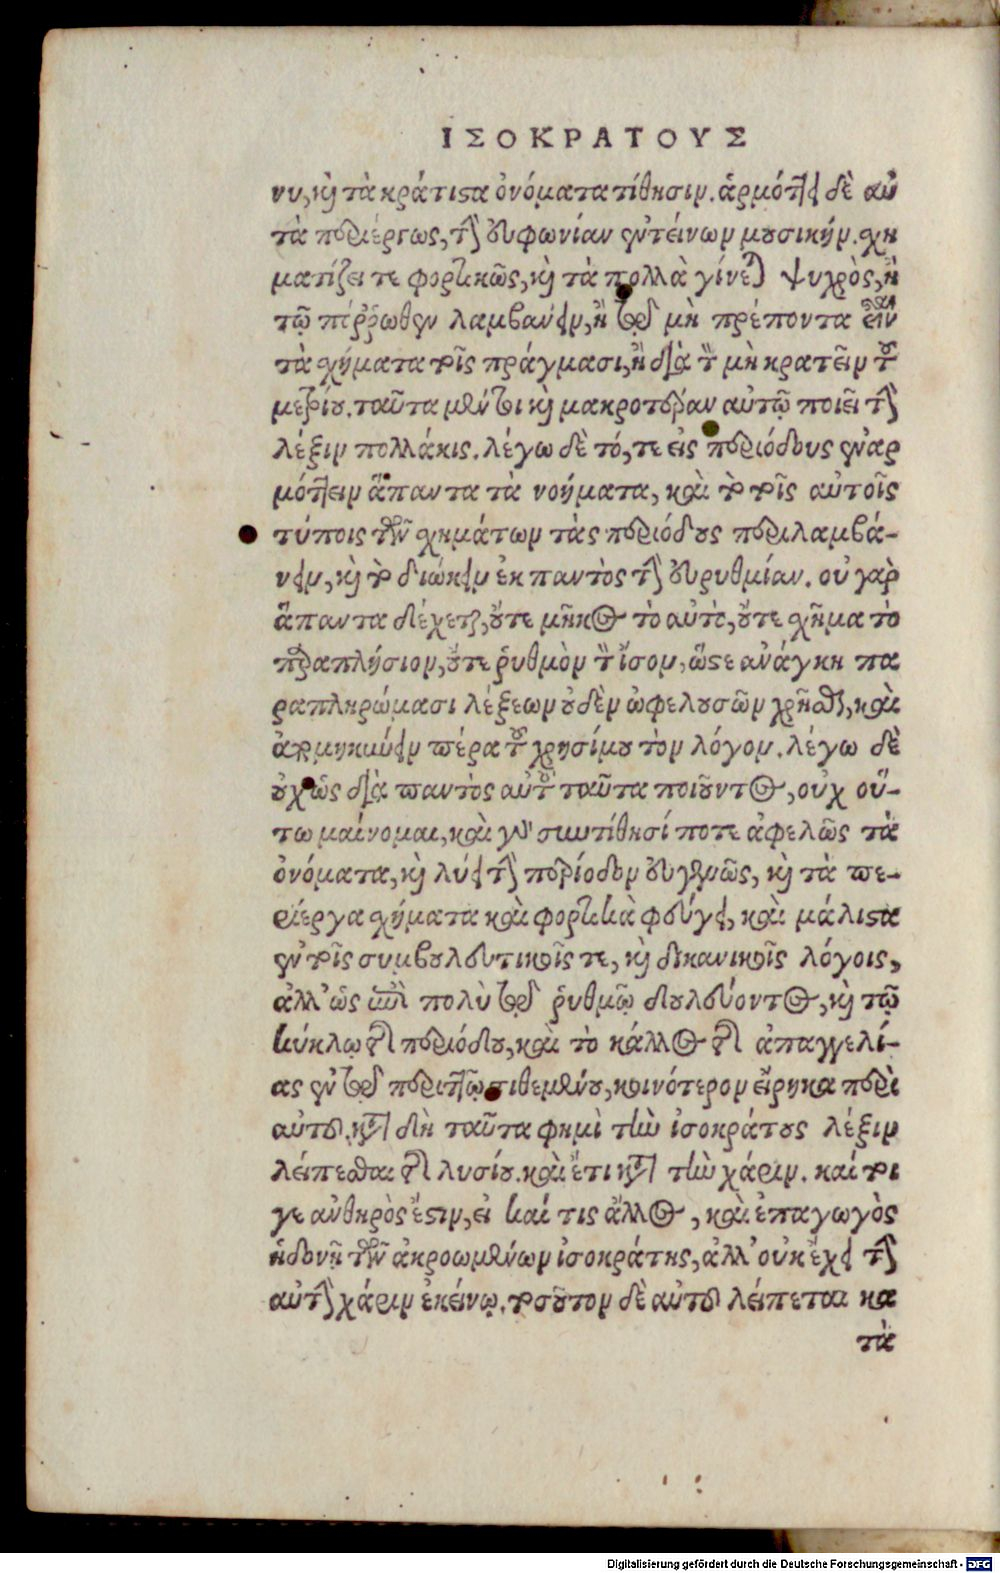 ΙΣΟΚΡΑΤΟΥΣ
νυ, καὶ τὰ κράτιστα ὀνόματα τίθησιν. ἁρμόττει δὲ αὐ
τὰ περιέργως, τὴν εὐφωνίαν ἐντείνων μουσικήν. σχη
ματίζει τε φορτικῶς, καὶ τὰ πολλὰ γίνεται ψυχρὸς, ἢ
τῷ πόρρωθεν λαμβάνειν, ἢ τῷ μὴ πρέποντα εἶναι
τὰ σχήματα τοῖς πράγμασι, ἢ διὰ τὸ μὴ κρατεῖν τοῦ
μετρίου. ταῦτα μέντοι καὶ μακροτέραν αὐτῷ ποιεῖ τὴν
λέξιν πολλάκις. λέγω δὲ τό, τε εἰς περιόδους ἐναρ
μόττειν ἅπαντα τὰ νοήματα, καὶ τὸ τοῖς αὐτοῖς
τύποις τῶν σχημάτων τὰς περιόδους περιλαμβά-
νειν, καὶ τὸ διώκειν ἐκ παντὸς τὴν εὐρυθμίαν. οὐ γὰρ
ἅπαντα δέχεται, οὔτε μῆκος τὸ αὐτὸ, οὔτε σχῆμα τὸ
παραπλήσιον, οὔτε ῥυθμὸν τὸν ἴσον, ὥστε ἀνάγκη πα
ραπληρώμασι λέξεων οὐδὲν ὠφελουσῶν χρῆσθαι, καὶ
ἀπομηκύνειν πέρα τοῦ χρησίμου τὸν λόγον. λέγω δὲ
οὐχ ὡς διὰ παντὸς αὐτοῦ ταῦτα ποιοῦντος, οὐχ οὕ-
τω μαίνομαι, καὶ γὰρ συντίθησί ποτε ἀφελῶς τὰ
ὀνόματα, καὶ λύει τὴν περίοδον εὐγενῶς, καὶ τὰ πε-
ρίεργα σχήματα καὶ φορτικὰ φεύγει, καὶ μάλιστα
ἐν τοῖς συμβουλευτικοῖς τε, καὶ δικανικοῖς λόγοις,
ἀλλ' ὡς ἐπὶ πολὺ τῷ ῥυθμῷ δουλεύοντος, καὶ τῷ
κύκλῳ τῆς περιόδου, καὶ τὸ κάλλος τῆς ἀπαγγελί-
ας ἐν τῷ περιττῷ τιθεμένου, κοινότερον εἴρηκα περὶ
αὐτοῦ. κατὰ δὴ ταῦτα φημὶ τὴν ἰσοκράτους λέξιν
λείπεσθαι τῆς λυσίου. καὶ ἔτι κατὰ τὴν χάριν. καί τοι
γε ἀνθηρὸς ἔστιν, εἰ καί τις ἄλλος, καὶ ἐπαγωγὸς
ἡδονῇ τῶν ἀκροωμένων ἰσοκράτης, ἀλλ' οὐκ ἔχει τὴν
αὐτὴν χάριν ἐκείνῳ. τοσοῦτον δὲ αὐτοῦ λείπεται κα
τὰ
Digitalisierung gefördert durch die Deutsche Forschungsgemeinschaft - DFG